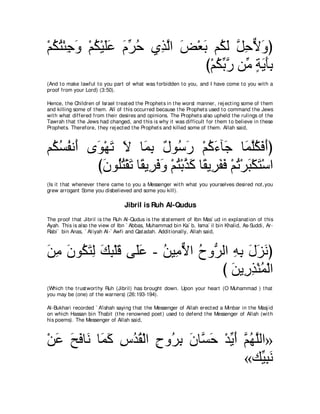 (وَلأُحِلَّ لَكُم بَعْضَ الَّذِي حُرِّمَ عَلَيْكُمْ وَجِئْتُكُمْ
بِأَيَةٍ مِّن رَّبِّكُمْ)
(And to make lawful to you part of what was forbidden to you, and I have come to you with a
proof from your Lord) (3:50).
Hence, the Children of Israel treated the Prophets in the worst manner, rejecting some of them
and killing some of them. All of this occurred because the Prophets used to command the Jews
with what differed from their desires and opinions. The Prophets also upheld the rulings of the
Tawrah that the Jews had changed, and this is why it was difficult for them to believe in these
Prophets. Therefore, they rejected the Prophets and killed some of them. Allah said,
(أَفَكُلَّمَا جَآءَكُمْ رَسُولٌ بِمَا لاَ تَهْوَى أَنفُسُكُم
اسْتَكْبَرْتُمْ فَفَرِيقًا كَذَّبْتُمْ وَفَرِيقًا تَقْتُلُونَ)
(Is it that whenever there came to you a Messenger with what you yourselves desired not, you
grew arrogant Some you disbelieved and some you kill).
Jibril is Ruh Al-Qudus
The proof that Jibril is the Ruh Al-Qudus is the statement of Ibn Mas`ud in explanation of this
Ayah. This is also the view of Ibn `Abbas, Muhammad bin Ka`b, Isma`il bin Khalid, As-Suddi, Ar-
Rabi` bin Anas, `Atiyah Al-`Awfi and Qatadah. Additionally, Allah said,
(نَزَلَ بِهِ الرُّوحُ الاٌّمِينُ - عَلَى قَلْبِكَ لِتَكُونَ مِنَ
الْمُنْذِرِينَ )
(Which the trustworthy Ruh (Jibril) has brought down. Upon your heart (O Muhammad ) that
you may be (one) of the warners) (26:193-194).
Al-Bukhari recorded `A'ishah saying that the Messenger of Allah erected a Minbar in the Masjid
on which Hassan bin Thabit (the renowned poet) used to defend the Messenger of Allah (with
his poems). The Messenger of Allah said,
«اللَّهُمَّ أَيِّدْ حَسَّانَ بِرُوحِ الْقُدُسِ كَمَا نَافَحَ عَنْ
نَبِيِّكَ»